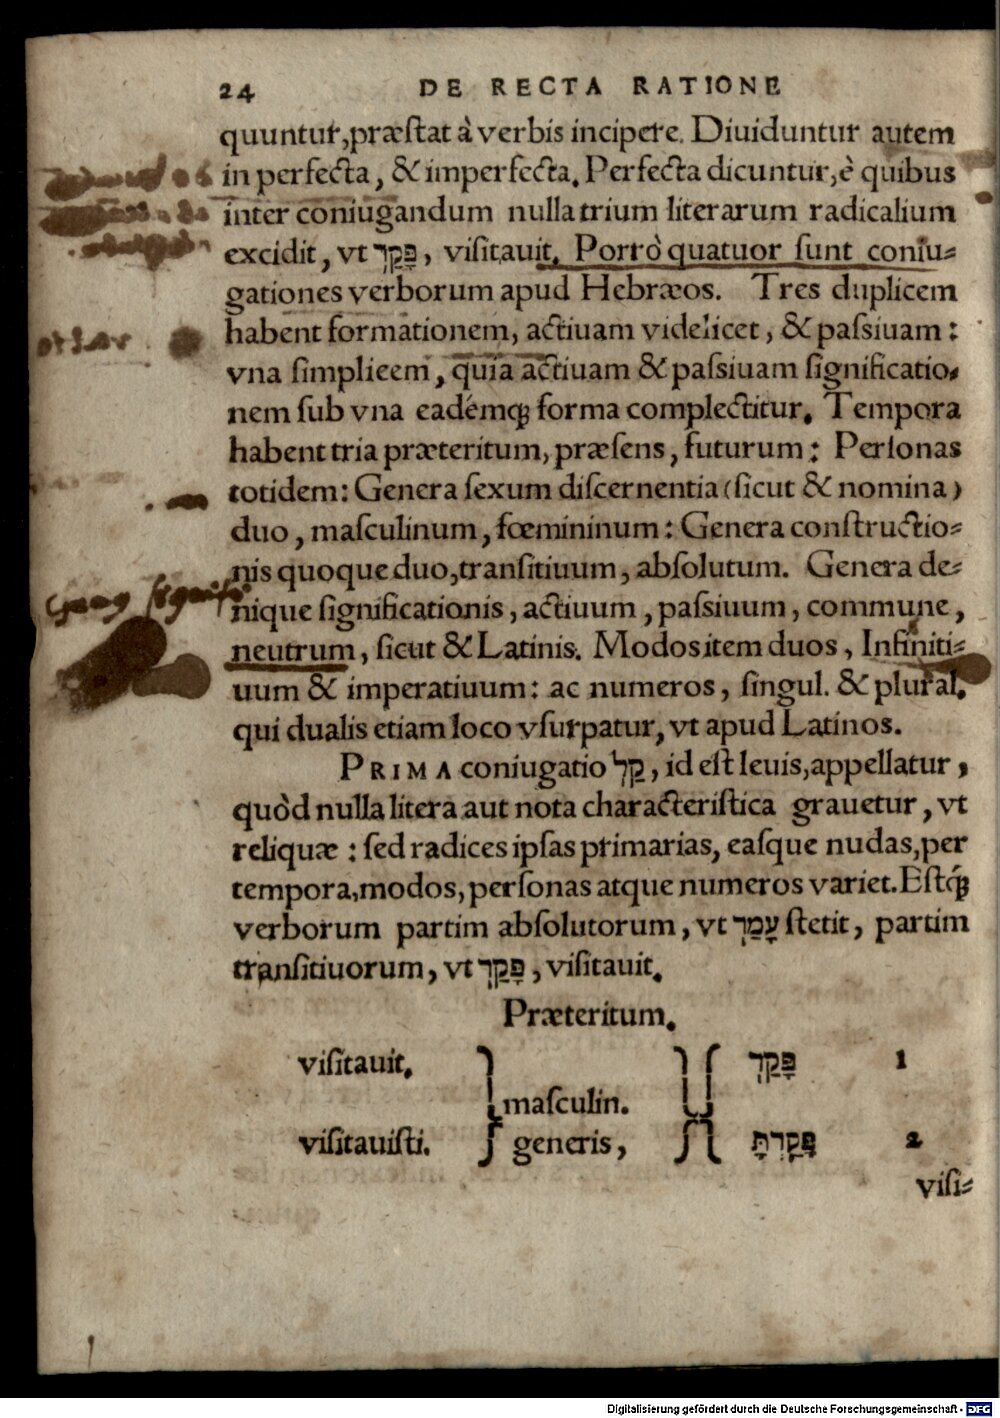 24 DE RECTA RATIONE
quuntur, præſtat à verbis incipere. Diuiduntur autem
in perfecta, & imperfecta. Perfecta dicuntur, è quibus
inter coniugandum nulla trium literarum radicalium
excidit, vt פָּקַד, viſitauit. Porrò quatuor ſunt coniu-
gationes verborum apud Hebræos. Tres duplicem
habent formationem, actiuam videlicet, & paſsiuam:
vna ſimplicem, quia actiuam & paſsiuam ſignificatio-
nem ſub vna eadémq; forma complectitur. Tempora
habent tria præteritum, præſens, futurum: Perſonas
totidem: Genera ſexum diſcernentia (ſicut & nomina)
duo, maſculinum, fœmininum: Genera conſtructio-
nis quoque duo, tranſitiuum, abſolutum. Genera de-
nique ſignificationis, actiuum, paſsiuum, commune,
neutrum, ſicut & Latinis. Modos item duos, Infiniti-
uum & imperatiuum: ac numeros, ſingul. & plural.
qui dualis etiam loco vſurpatur, vt apud Latinos.
PRIMA coniugatio קַל, id eſt leuis, appellatur,
quòd nulla litera aut nota characteriſtica grauetur, vt
reliquæ: ſed radices ipſas primarias, eaſque nudas, per
tempora, modos, perſonas atque numeros variet. Eſtq́;
verborum partim abſolutorum, vt עָמַד ſtetit, partim
tranſitiuorum, vt פָּקַד, viſitauit.
Præteritum.
viſitauit. פָּקַד 1
maſculin.
viſitauiſti. generis, פָּקַדְתָּ 2
viſi-
Digitalisierung gefördert durch die Deutsche Forschungsgemeinschaft - DFG